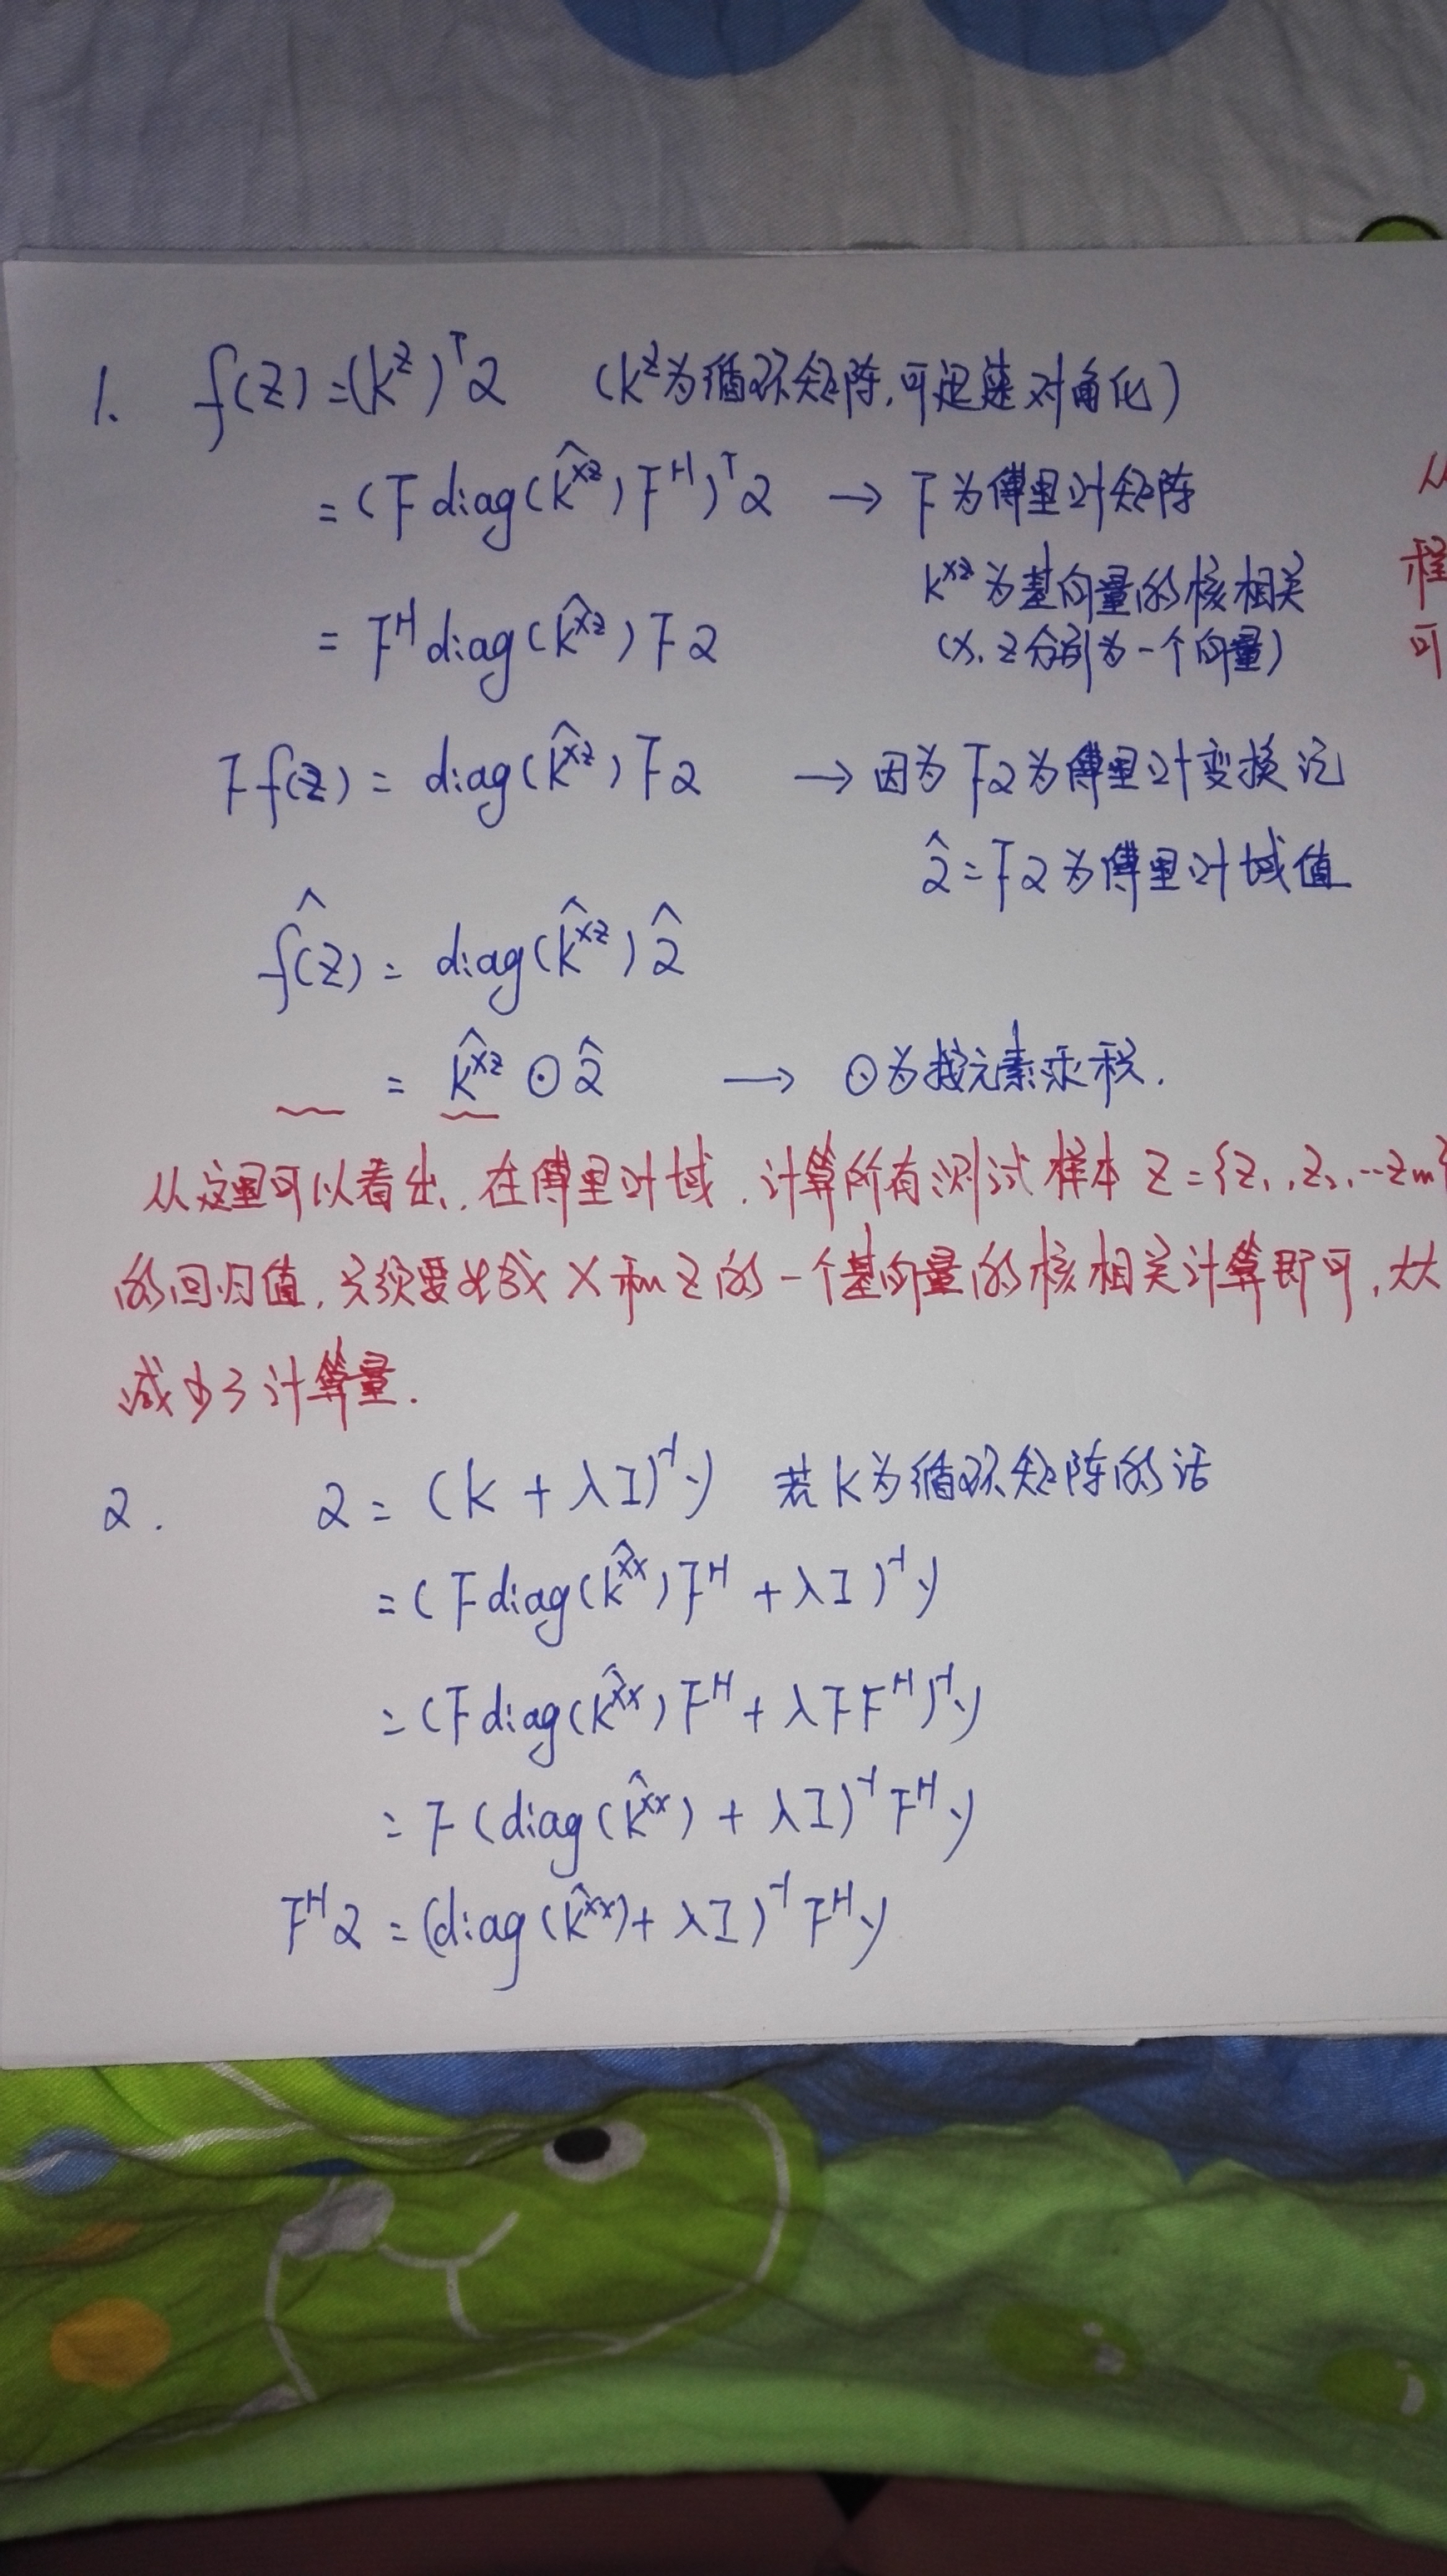 1. f(z) = (k^z)^T α (k^z为循环矩阵,可迅速对角化)
= (F diag(\hat{k}^{xz}) F^H)^T α → F为傅里叶矩阵
从
k^{xz}为基向量的核相关
程
= F^H diag(\hat{k}^{xz}) F α (x、z分别为一个向量)
可
F f(z) = diag(\hat{k}^{xz}) F α → 因为Fα为傅里叶变换记
\hat{α} = Fα为傅里叶域值
\hat{f}(z) = diag(\hat{k}^{xz}) \hat{α}
= \hat{k}^{xz} ⊙ \hat{α} → ⊙为按元素乘积.
从这里可以看出,在傅里叶域,计算所有测试样本 Z={z_1,z_2,…z_m}
的回归值,只须要做X和Z的一个基向量的核相关计算即可,大大
减少了计算量.
2. α = (k + λI)^{-1} y 若k为循环矩阵的话
= (F diag(\hat{k}^{xx}) F^H + λI)^{-1} y
= (F diag(\hat{k}^{xx}) F^H + λFF^H)^{-1} y
= F (diag(\hat{k}^{xx}) + λI)^{-1} F^H y
F^H α = (diag(\hat{k}^{xx}) + λI)^{-1} F^H y